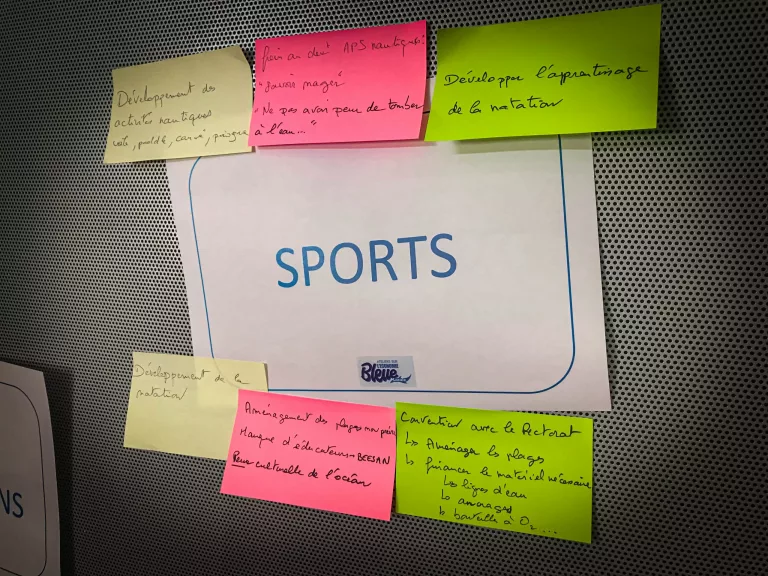 Développement des
activités nautiques
Frein au dév' APS nautiques:
"savoir nager"
"Ne pas avoir peur de tomber
à l'eau..."
Développer l'apprentissage
de la natation
SPORTS
ATELIERS SUR
L'ECONOMIE
Bleue
Développement de la
natation
Aménagement des plages
Manque d'éducateurs BEESAN
Peur culturelle de l'océan
Convention avec le Rectorat
↳ Aménager les plages
↳ financer le matériel nécessaire
↳ lignes d'eau
↳ amarrages
↳ bouteille à O₂...
NS